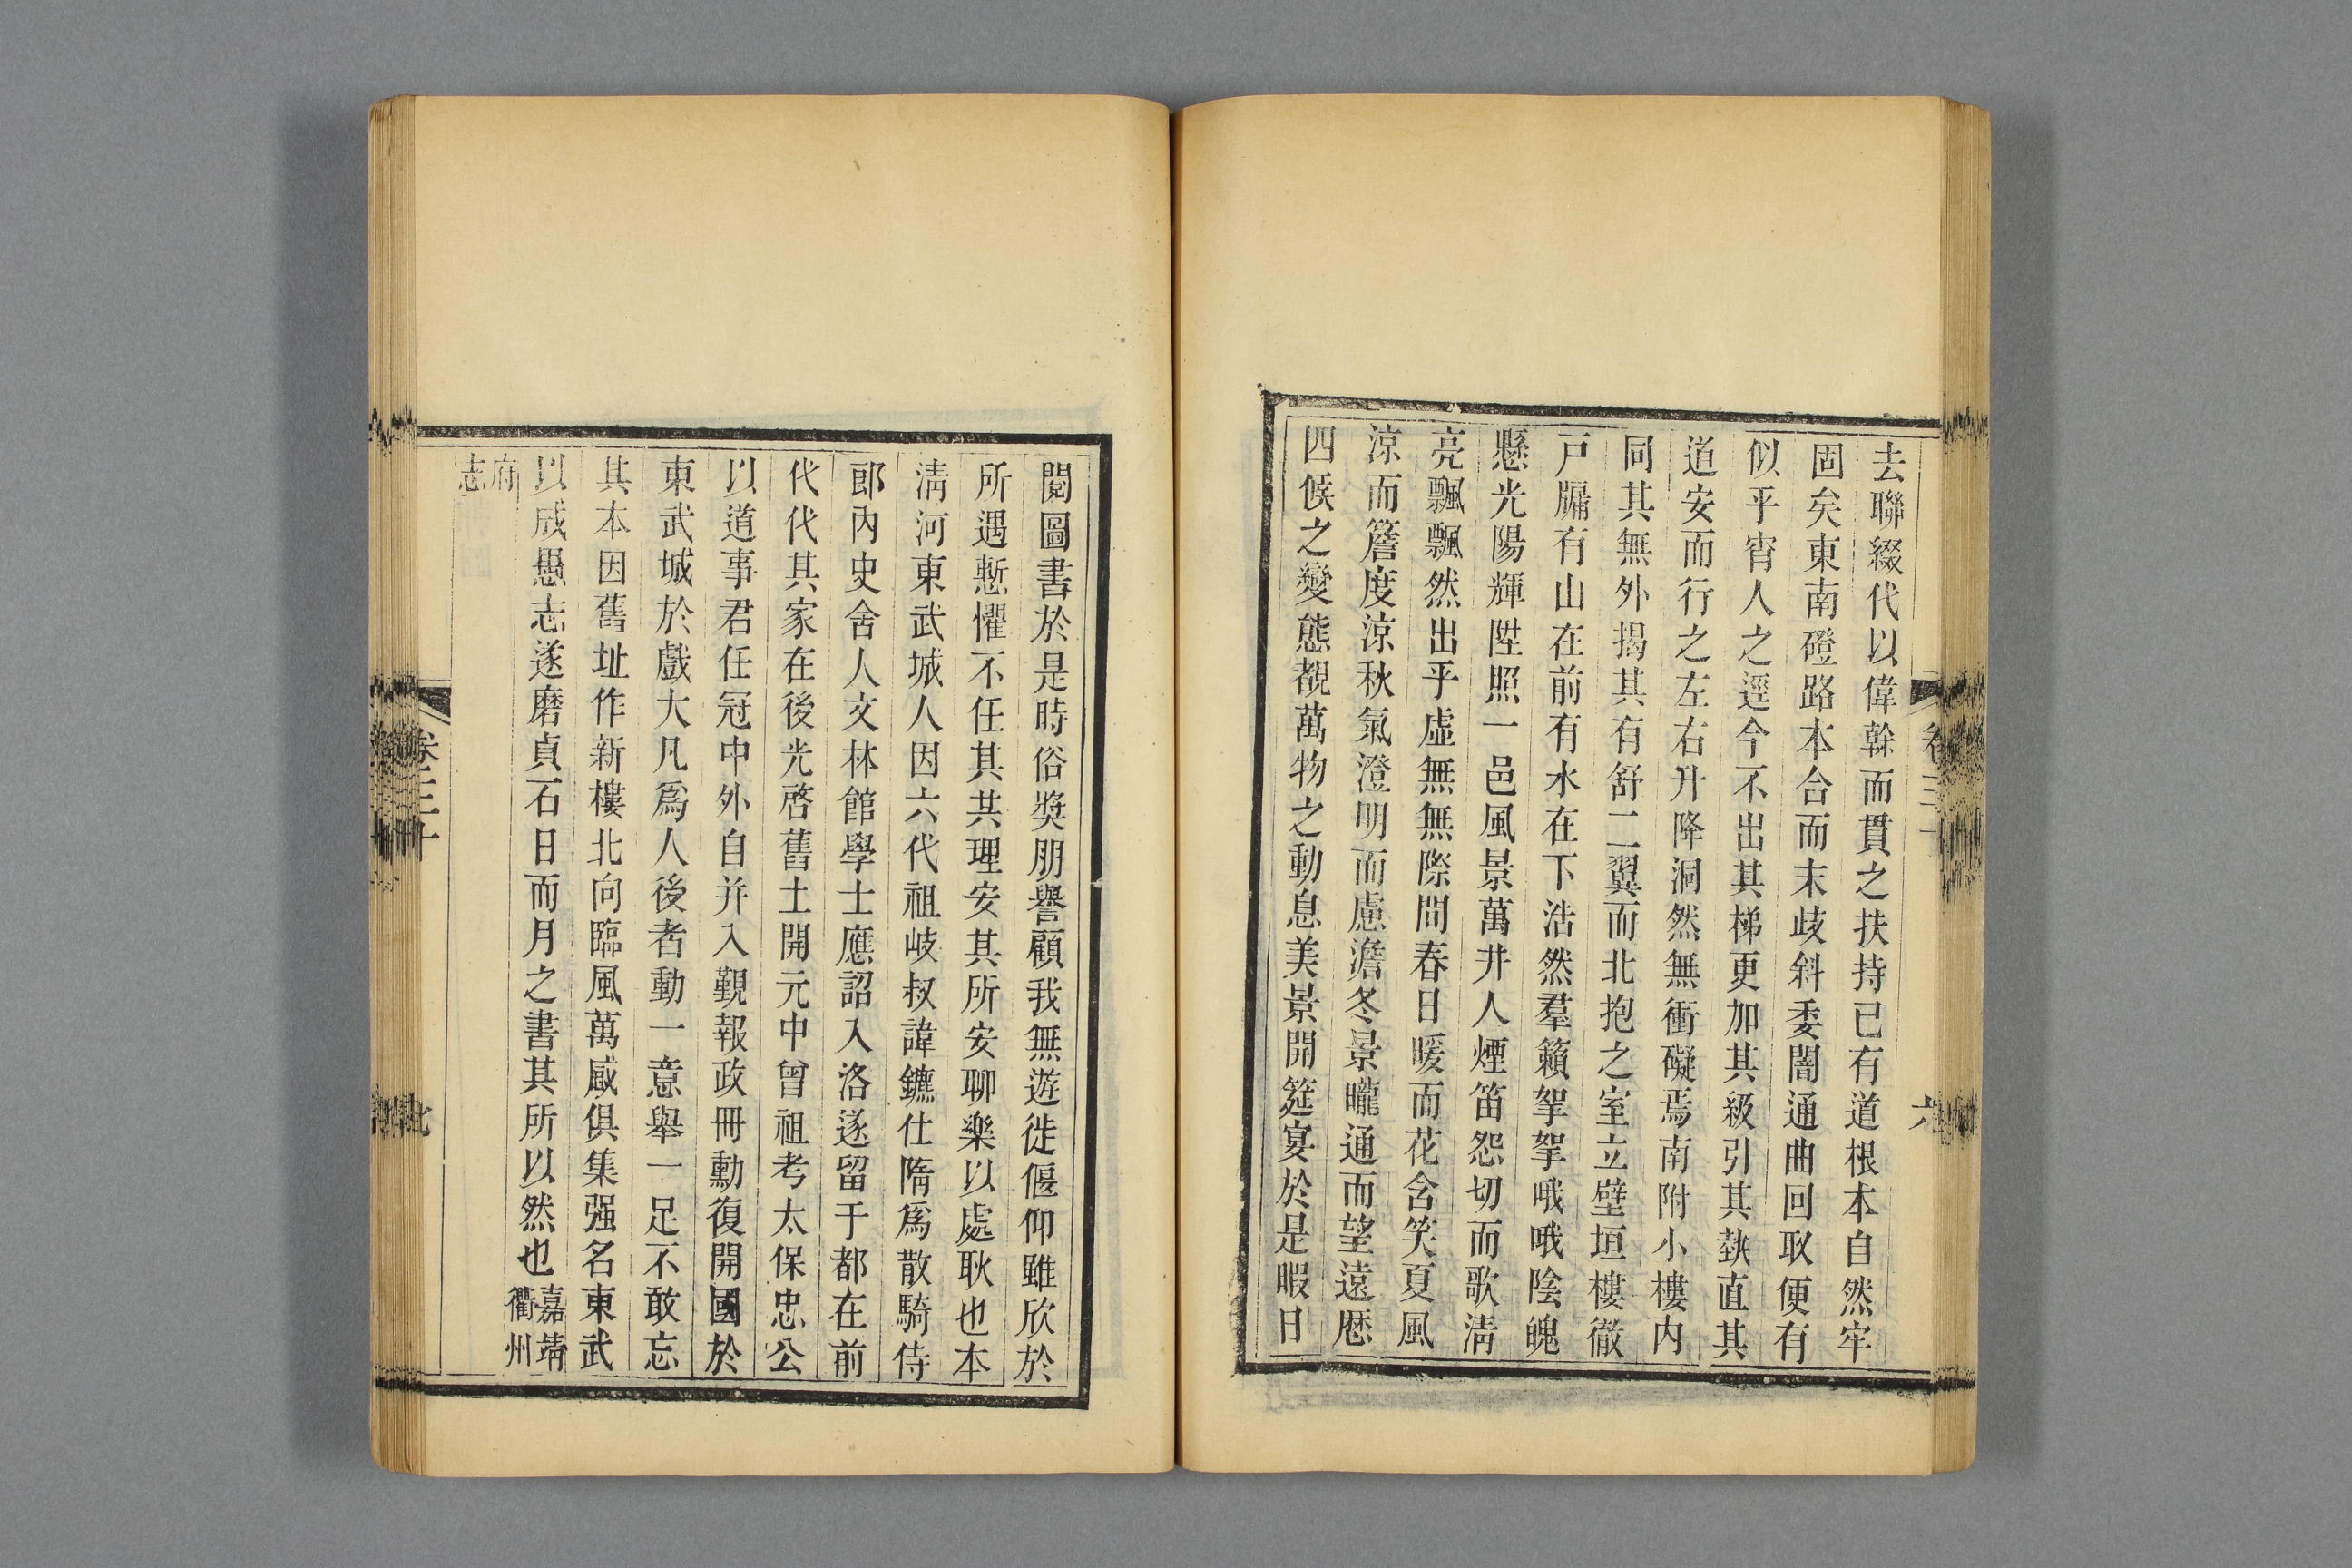 去聯綴代以偉榦而貫之扶持已有道根本自然牢
固矣東南磴路本合而末歧斜委闇通曲回取便有
似乎宵人之逕今不出其梯更加其級引其埶直其
道安而行之左右升降洞然無衝礙焉南附小樓内
同其無外揭其有舒二翼而北抱之室立壁垣樓徹
戸牖有山在前有水在下浩然羣籟挐挐哦哦陰魄
懸光陽輝陞照一邑風景萬井人煙笛怨切而歌淸
亮飄飄然出乎虛無無際間春日暖而花含笑夏風
涼而簷度涼秋氣澄明而慮澹冬景曨通而望遠歴
四候之變態覩萬物之動息美景開筵宴於是暇日
卷三十
六
閱圖書於是時俗奬朋譽顧我無遊徙偃仰雖欣於
所遇慙懼不任其共理安其所安聊樂以處耿也本
淸河東武城人因六代祖岐叔諱鑣仕隋爲散騎侍
郎內史舍人文林館學士應詔入洛遂留于都在前
代代其家在後光啓舊土開元中曾祖考太保忠公
以道事君任冠中外自并入覲報政冊勳復開國於
東武城於戲大凡爲人後者動一意舉一足不敢忘
其本因舊址作新樓北向臨風萬感俱集强名東武
以成愚志遂磨貞石日而月之書其所以然也嘉靖衢州
府志
卷三十